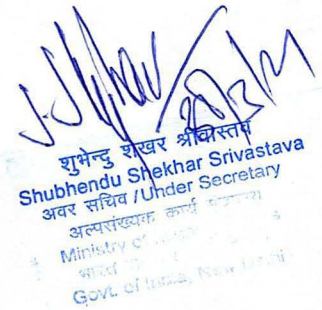 शुभेन्दु शेखर श्रीवास्तव
Shubhendu Shekhar Srivastava
अवर सचिव /Under Secretary
अल्पसंख्यक कार्य
Ministry of
भारत
Govt. of India, New Delhi